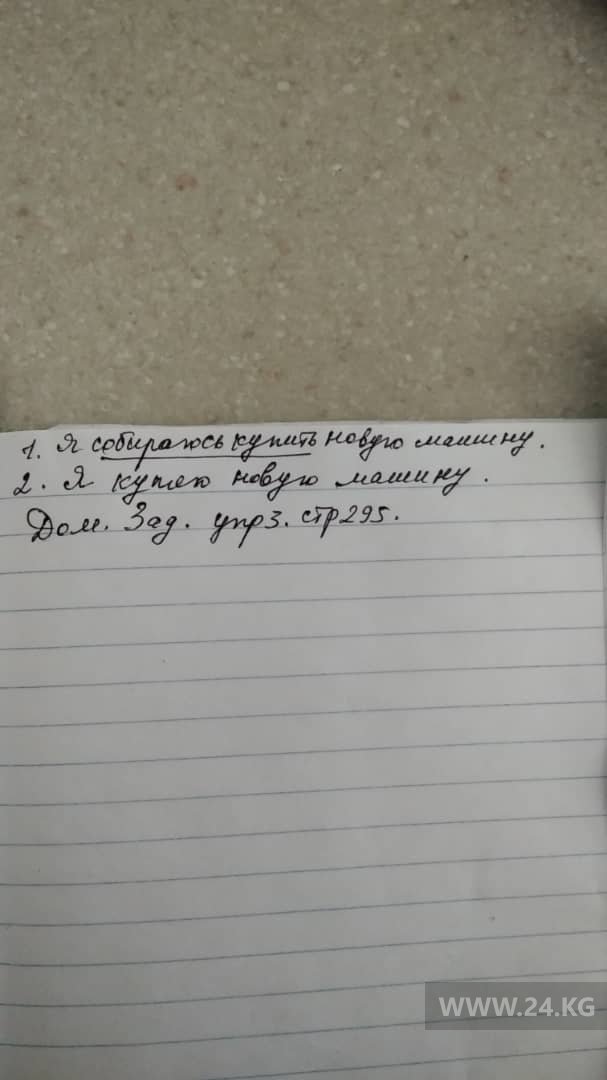 1. Я собираюсь купить новую машину.
2. Я куплю новую машину.
Дом. Зад. упр3. стр295.
WWW.24.KG